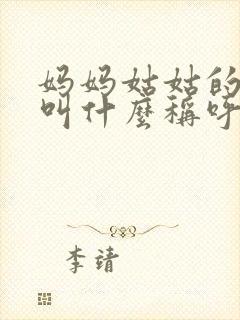 妈妈姑姑的
叫什麼稱呼
李靖